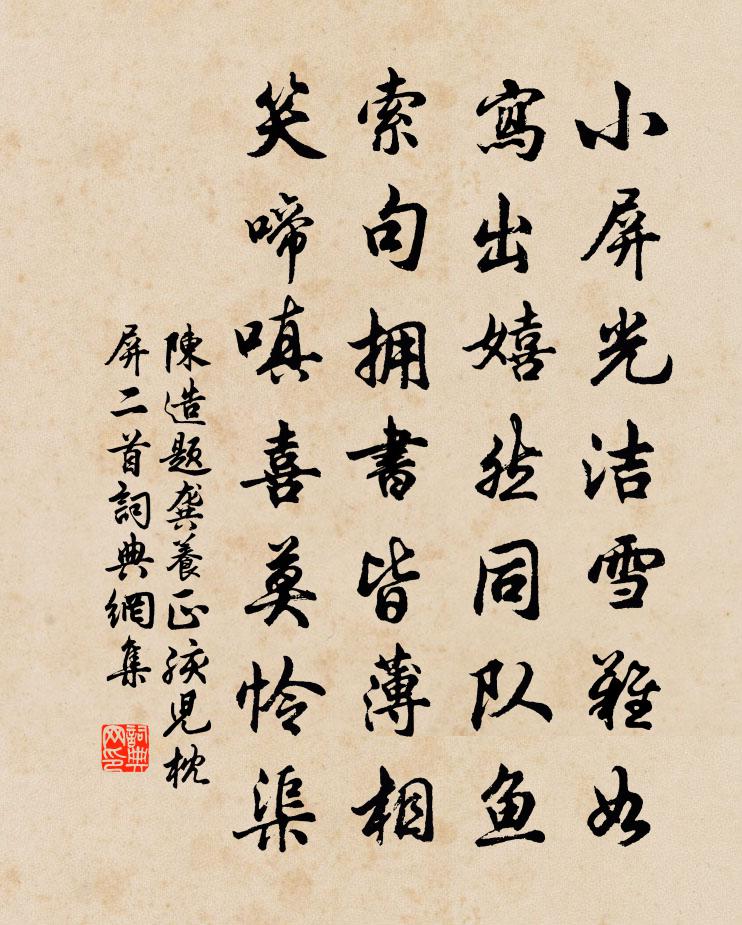 小屏光洁雪難如
寫出嬉然同队鱼
索句拥書皆薄相
笑啼嗔喜莫怜渠
陳造題龔養正孩児枕
屏二首詞典網集
詞典网印